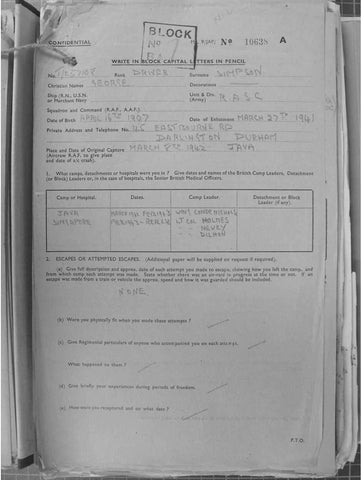 BLOCK
No
CONFIDENTIAL
M.I. No 10638 A
WRITE IN BLOCK CAPITAL LETTERS IN PENCIL
No. Rank DRIVER Surname SIMPSON
Christian Names GEORGE Decorations
Ship (R.N., U.S.N. or Merchant Navy Unit & Div. (Army) R.A.S.C
Squadron and Command (R.A.F., A.A.F.)
Date of Birth APRIL 16TH 1907 Date of Enlistment MARCH 27TH 1941
Private Address and Telephone No. 145 EASTBOURNE RD
DARLINGTON DURHAM
Place and Date of Original Capture MARCH 8TH 1942 JAVA
(Aircrew R.A.F. to give place
and date of a/c crash)
1. What camps, detachments or hospitals were you in? Give dates and names of the British Camp Leaders, Detachment
(or Block) Leaders or, in the case of hospitals, the Senior British Medical Officers.
Camp or Hospital. Dates. Camp Leader. Detachment or Block Leader (if any).
JAVA WING COMDR NICHOLS
SINGAPORE LT COL HOLMES
" " NEWEY
" " DILLON
2. ESCAPES OR ATTEMPTED ESCAPES. (Additional paper will be supplied on request if required).
(a) Give full description and approx. date of each attempt you made to escape, showing how you left the camp, and
from which camp each attempt was made. State whether there was an air-raid in progress at the time or not. If an
escape was made from a train or vehicle the approx. speed and how it was guarded should be included.
NONE
(b) Were you physically fit when you made these attempts?
(c) Give Regimental particulars of anyone who accompanied you on each attempt.
What happened to them?
(d) Give briefly your experiences during periods of freedom.
(e) How were you recaptured and on what date?
P.T.O.